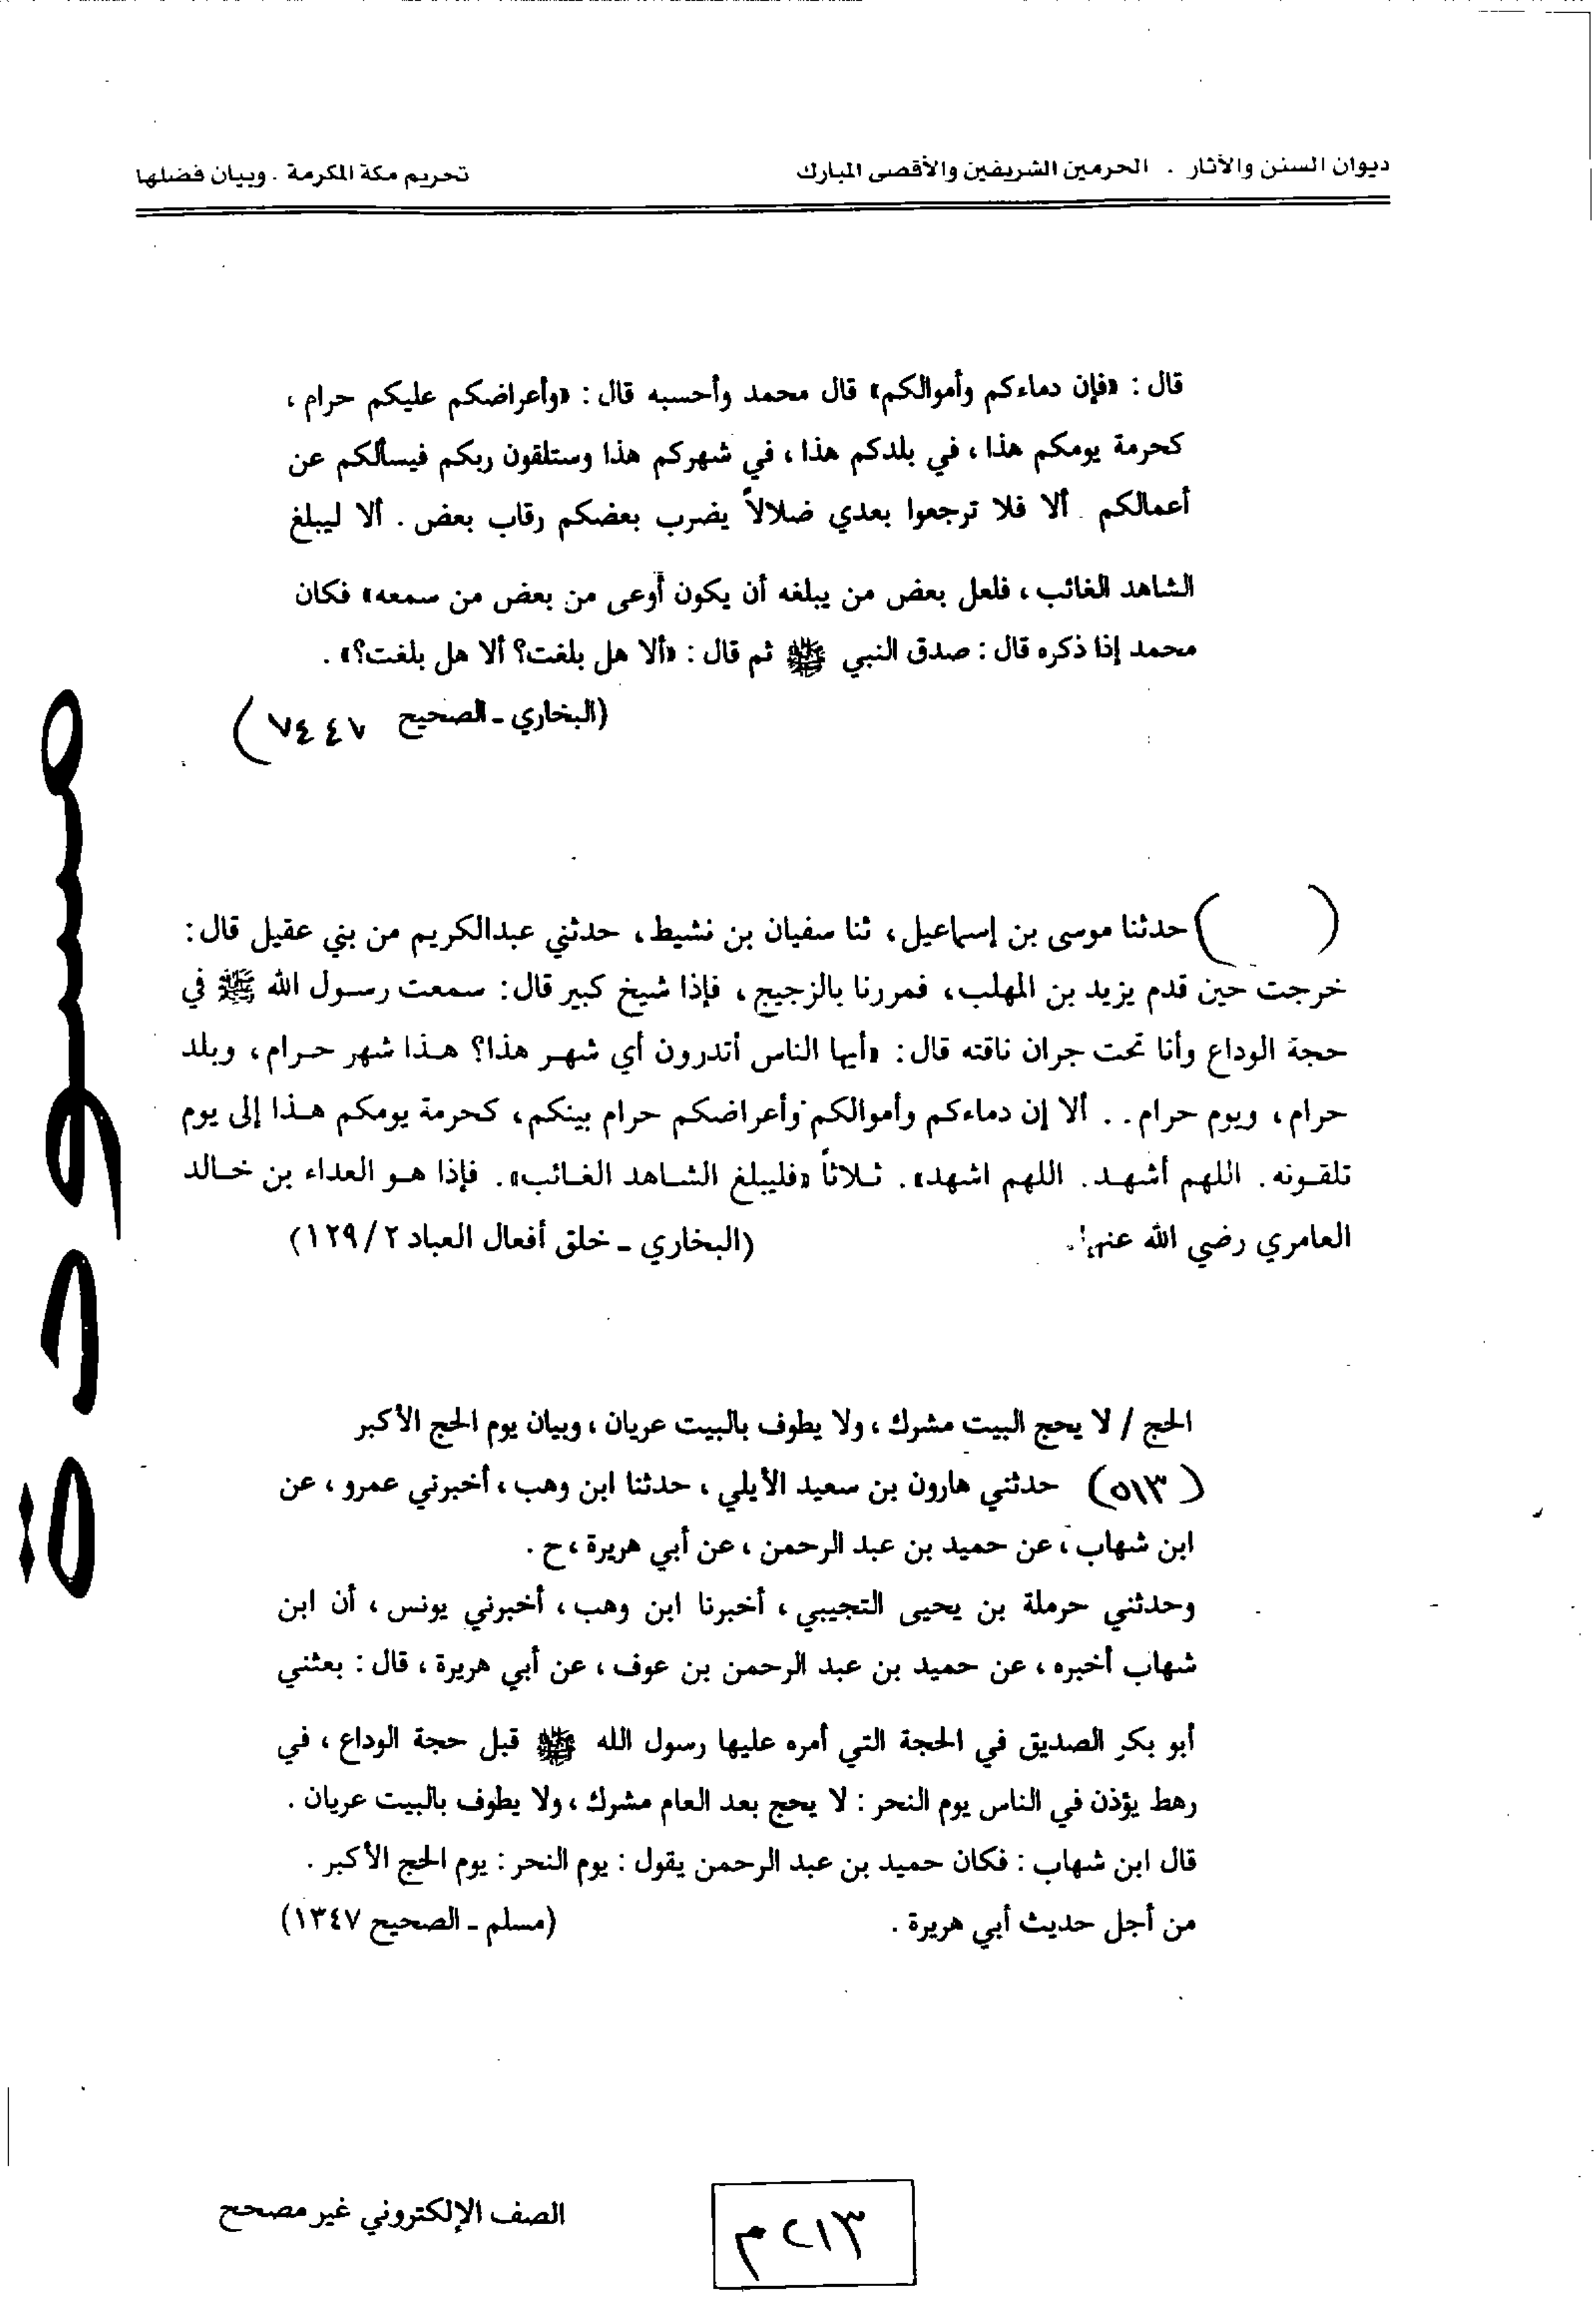 ديوان السنن والآثار . الحرمين الشريفين والأقصى المبارك
تحريم مكة المكرمة . وبيان فضلها
قال : «فإن دماءكم وأموالكم» قال محمد وأحسبه قال : «وأعراضكم عليكم حرام ،
كحرمة يومكم هذا ، في بلدكم هذا ، في شهركم هذا وستلقون ربكم فيسألكم عن
أعمالكم . ألا فلا ترجعوا بعدي ضلالاً يضرب بعضكم رقاب بعض . ألا ليبلغ
الشاهد الغائب ، فلعل بعض من يبلغه أن يكون أوعى من بعض من سمعه» فكان
محمد إذا ذكره قال : صدق النبي ﷺ ثم قال : «ألا هل بلغت؟ ألا هل بلغت؟» .
(البخاري - الصحيح ٧٤٤٧)
( ) حدثنا موسى بن إسماعيل، ثنا سفيان بن نشيط، حدثني عبدالكريم من بني عقيل قال:
خرجت حين قدم يزيد بن المهلب، فمررنا بالزجيج، فإذا شيخ كبير قال: سمعت رسول الله ﷺ في
حجة الوداع وأنا تحت جران ناقته قال: «أيها الناس أتدرون أي شهر هذا؟ هذا شهر حرام، وبلد
حرام، ويوم حرام.. ألا إن دماءكم وأموالكم وأعراضكم حرام بينكم، كحرمة يومكم هذا إلى يوم
تلقونه. اللهم أشهد. اللهم اشهد». ثلاثاً «فليبلغ الشاهد الغائب». فإذا هو العداء بن خالد
العامري رضي الله
(البخاري - خلق أفعال العباد ٢/ ١٢٩)
الحج / لا يحج البيت مشرك ، ولا يطوف بالبيت عريان ، وبيان يوم الحج الأكبر
(٥١٣) حدثني هارون بن سعيد الأيلي ، حدثنا ابن وهب ، أخبرني عمرو ، عن
ابن شهاب ، عن حميد بن عبد الرحمن ، عن أبي هريرة ، ح .
وحدثني حرملة بن يحيى التجيبي ، أخبرنا ابن وهب ، أخبرني يونس ، أن ابن
شهاب أخبره ، عن حميد بن عبد الرحمن بن عوف ، عن أبي هريرة ، قال : بعثني
أبو بكر الصديق في الحجة التي أمره عليها رسول الله ﷺ قبل حجة الوداع ، في
رهط يؤذن في الناس يوم النحر : لا يحج بعد العام مشرك ، ولا يطوف بالبيت عريان .
قال ابن شهاب : فكان حميد بن عبد الرحمن يقول : يوم النحر : يوم الحج الأكبر .
من أجل حديث أبي هريرة .
(مسلم - الصحيح ١٣٤٧)
مسودة
٢١٣م
الصف الإلكتروني غير مصحح